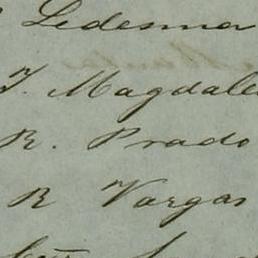 Ledesma
T. Magdale
R. Prado
R Vargas